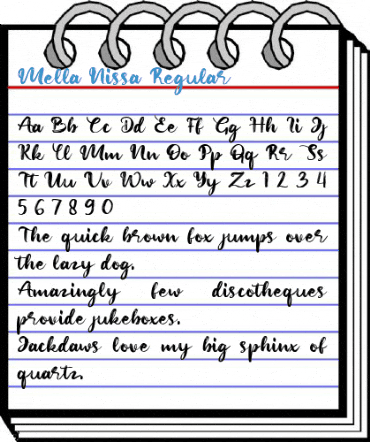 Mella Nissa Regular
Aa Bb Cc Dd Ee Ff Gg Hh Ii Jj
Kk Ll Mm Nn Oo Pp Qq Rr Ss
Tt Uu Vv Ww Xx Yy Zz 1 2 3 4
5 6 7 8 9 0
The quick brown fox jumps over
the lazy dog.
Amazingly few discotheques
provide jukeboxes.
Jackdaws love my big sphinx of
quartz.